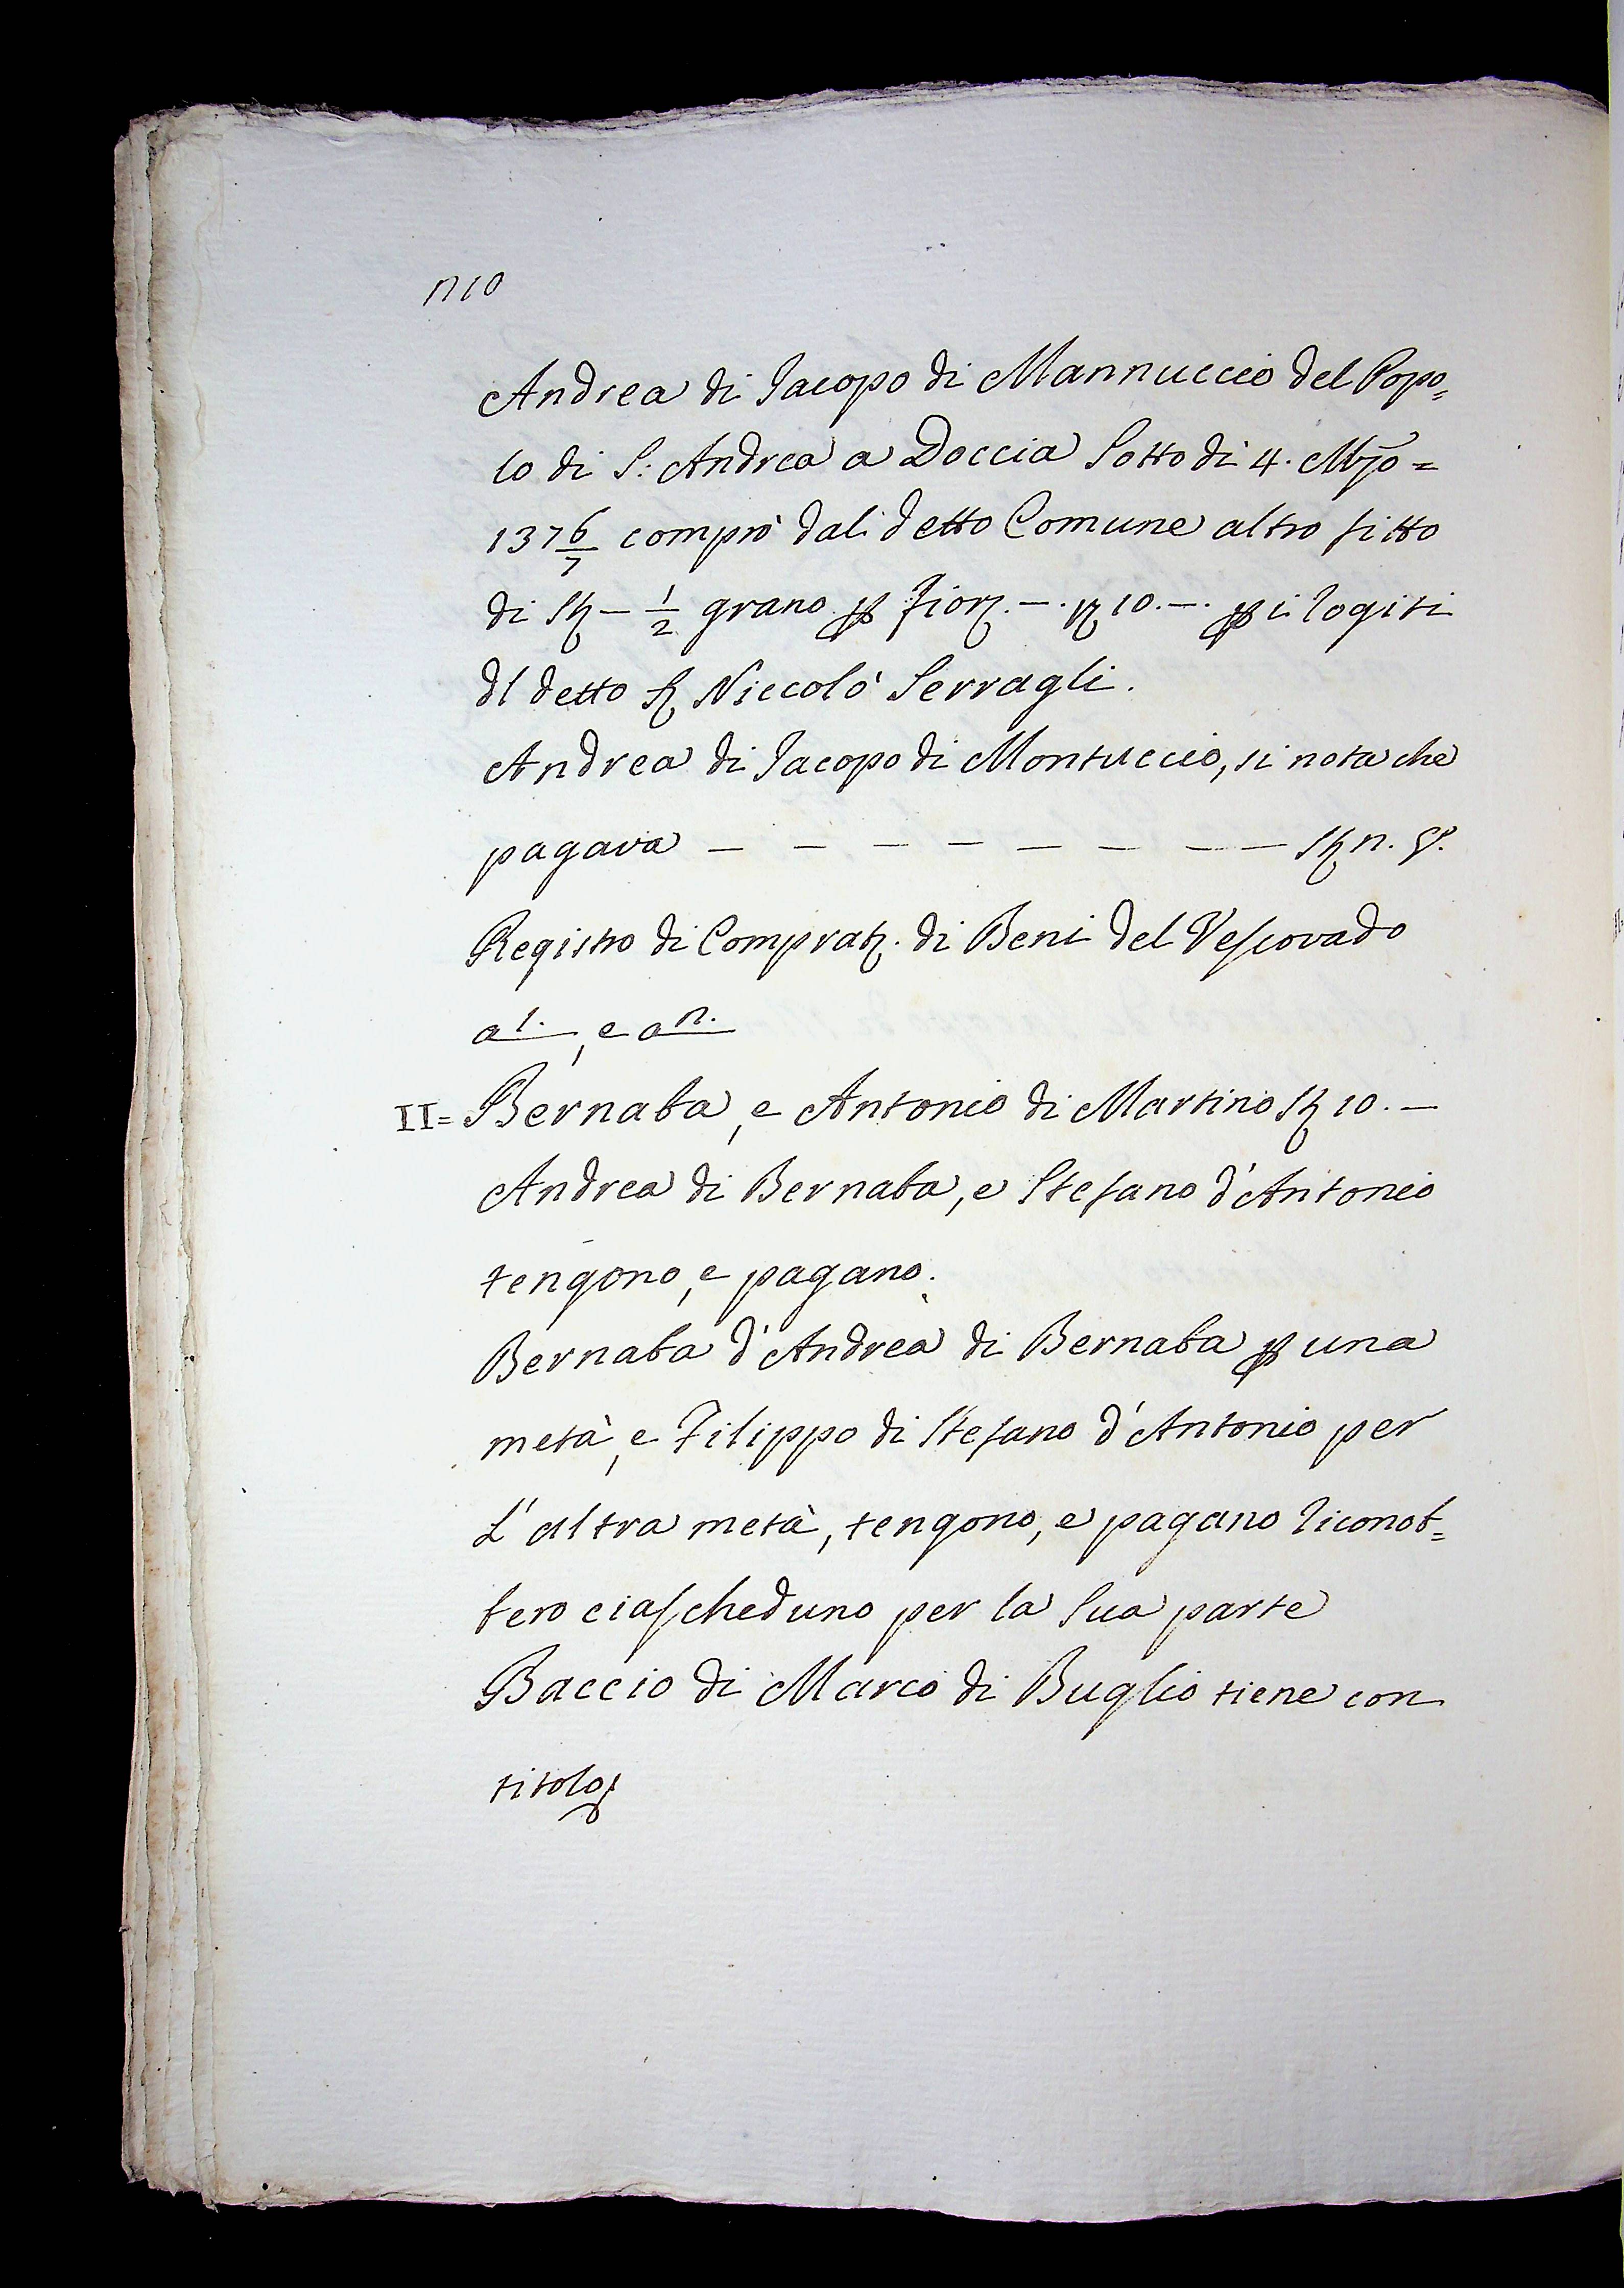 210
Andrea di Jacopo di Mannuccio del Popo=
lo di S: Andrea a Doccia Sotto dì 4. Mṙo=
1376/7 comprò dali detto Comune altro fitto
di St – 1/2 grano p fior. –. 10. –. p i rogiti
dl detto S Niccolò Serragli.
Andrea di Jacopo di Montuccio, si nota che
pagava – – – – – – – – St 2.
Registro di Comprat. di Beni del Vescovado
a 1., e a 2.
II= Bernaba, e Antonio di Martino St 10. –
Andrea di Bernaba, e Stefano d'Antonio
tengono, e pagano.
Bernaba d'Andrea di Bernaba p una
metà, e Filippo di Stefano d'Antonio per
L'altra metà, tengono, e pagano riconob=
bero ciascheduno per la Sua parte
Baccio di Marco di Buglio tiene con
titolo